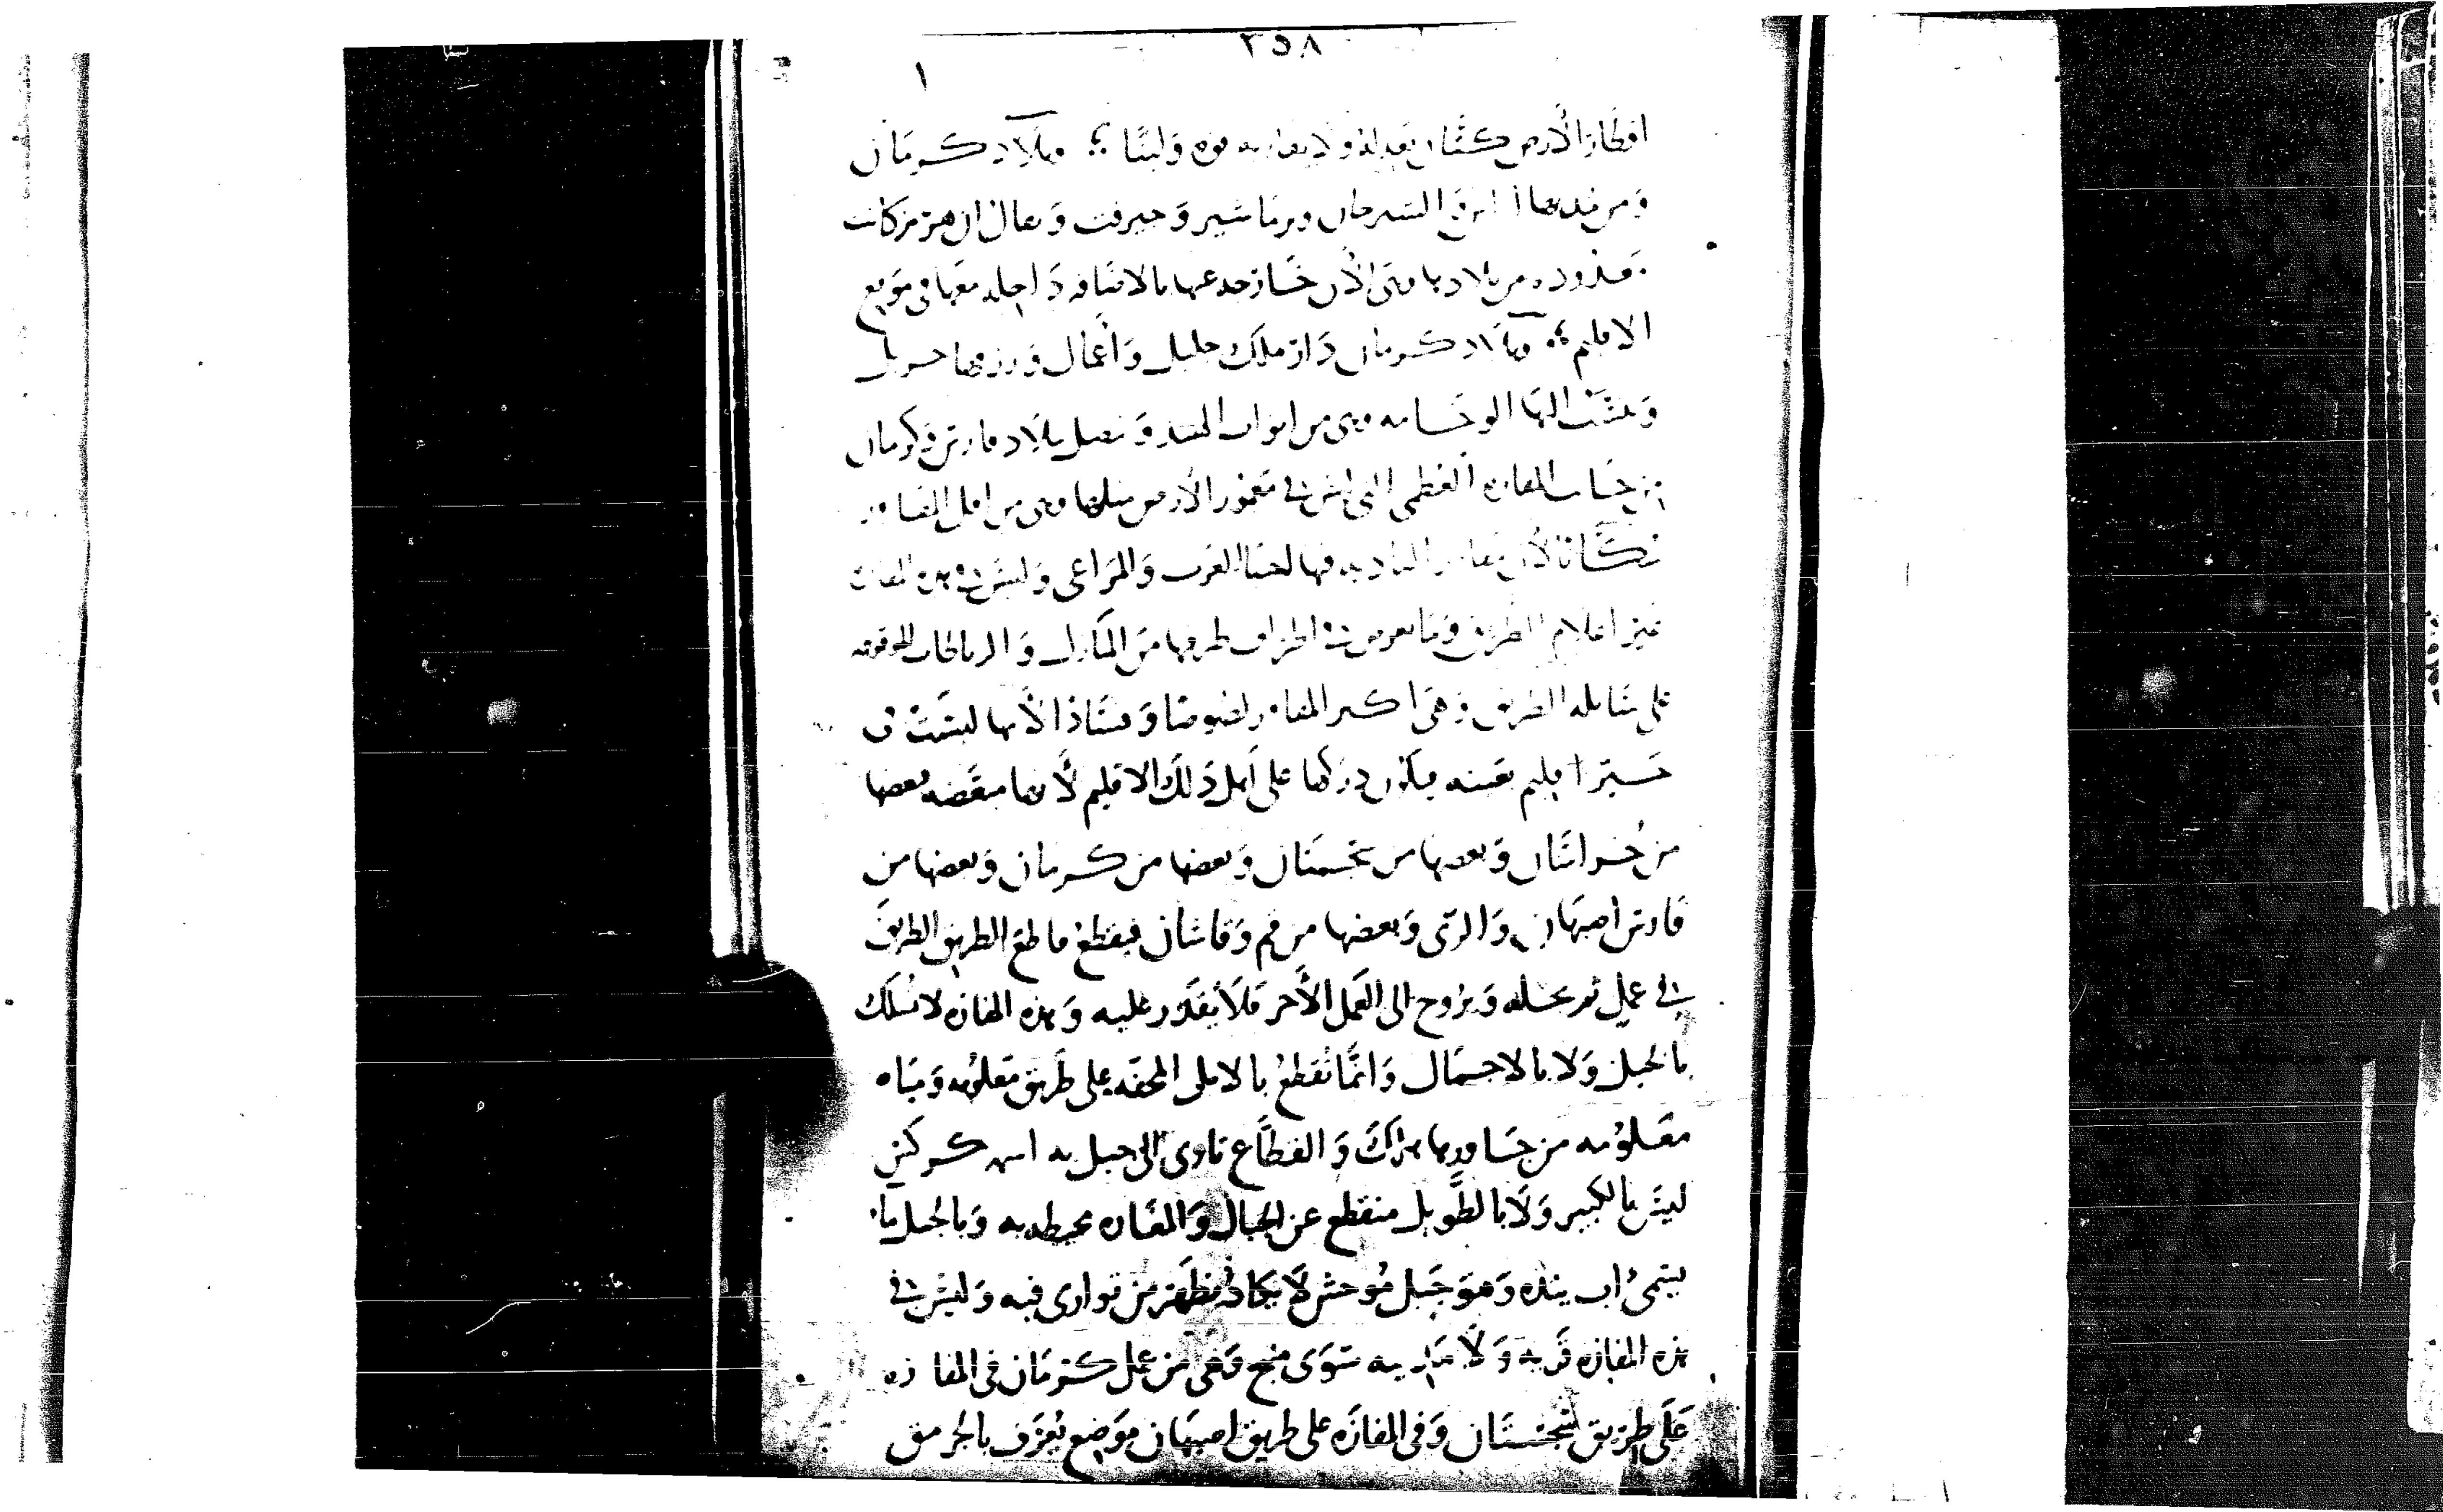 ٢٥٨
١
اقطار الأرض كتان يعدله ولا يقاربه قوة ولينا وبلاد كرمان
ومن مدنها السيرجان وبرماشير وجيرفت ويقال ان هرمز كانت
من بلادها وهي الآن خارجه عنها بالاضافه داخله معها في
الاقليم وبلاد كرمان دار ملك جليل واعمال
اليها وهي من ابواب السند وتتصل ببلاد فارس وكرمان
من المفازه العظمى التي ليس في معمور الأرض مثلها وهي من اقل المفاوز
سكانا لأن مفاوز الباديه فيها احيا العرب والمراعى وليس في هذه المفازة
غير اعلام الطريق وما يعرض في اطراف طرقها من المنازل والرباطات الموقوفه
على سابله الطريق وهي اكبر المفاوز لصوصا وفسادا لأنها ليست في
حيز اقليم بعينه فيكون دركها على اهل ذلك الاقليم لأنها مقتضه بعضها
من خراسان وبعضها من سجستان وبعضها من كرمان وبعضها من
فارس اصبهان والرى وبعضها من قم وقاشان فيقطع قاطع الطريق الطريق
في عمل ثم يخليه ويروح الى العمل الأخر فلا يقدر عليه وهذه المفازه لا تسلك
بالخيل ولا بالاحمال وانما تقطع بالابل المخفه على طريق معلومه ومياه
معلومه من جاوزها هلك والقطاع تاوى الى جبل به اسمه كركس
ليس بالكبير ولا بالطويل منقطع عن الجبال والمفازه محيطه به وبالجبل ما
يسمى اب بنده وهو جبل موحش لا يكاد يظهر من توارى فيه وليس في
هذه المفازه قريه ولا مدينه سوى سنيج وهي من عمل كرمان في المفازه
على طريق سجستان وفي المفازه على طريق اصبهان موضع يعرف بالجرمق